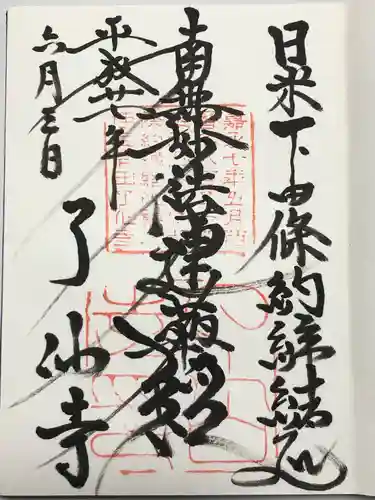 日米下田條約締結処
南無妙法蓮華経
平成廿七年
六月三日
了仙寺